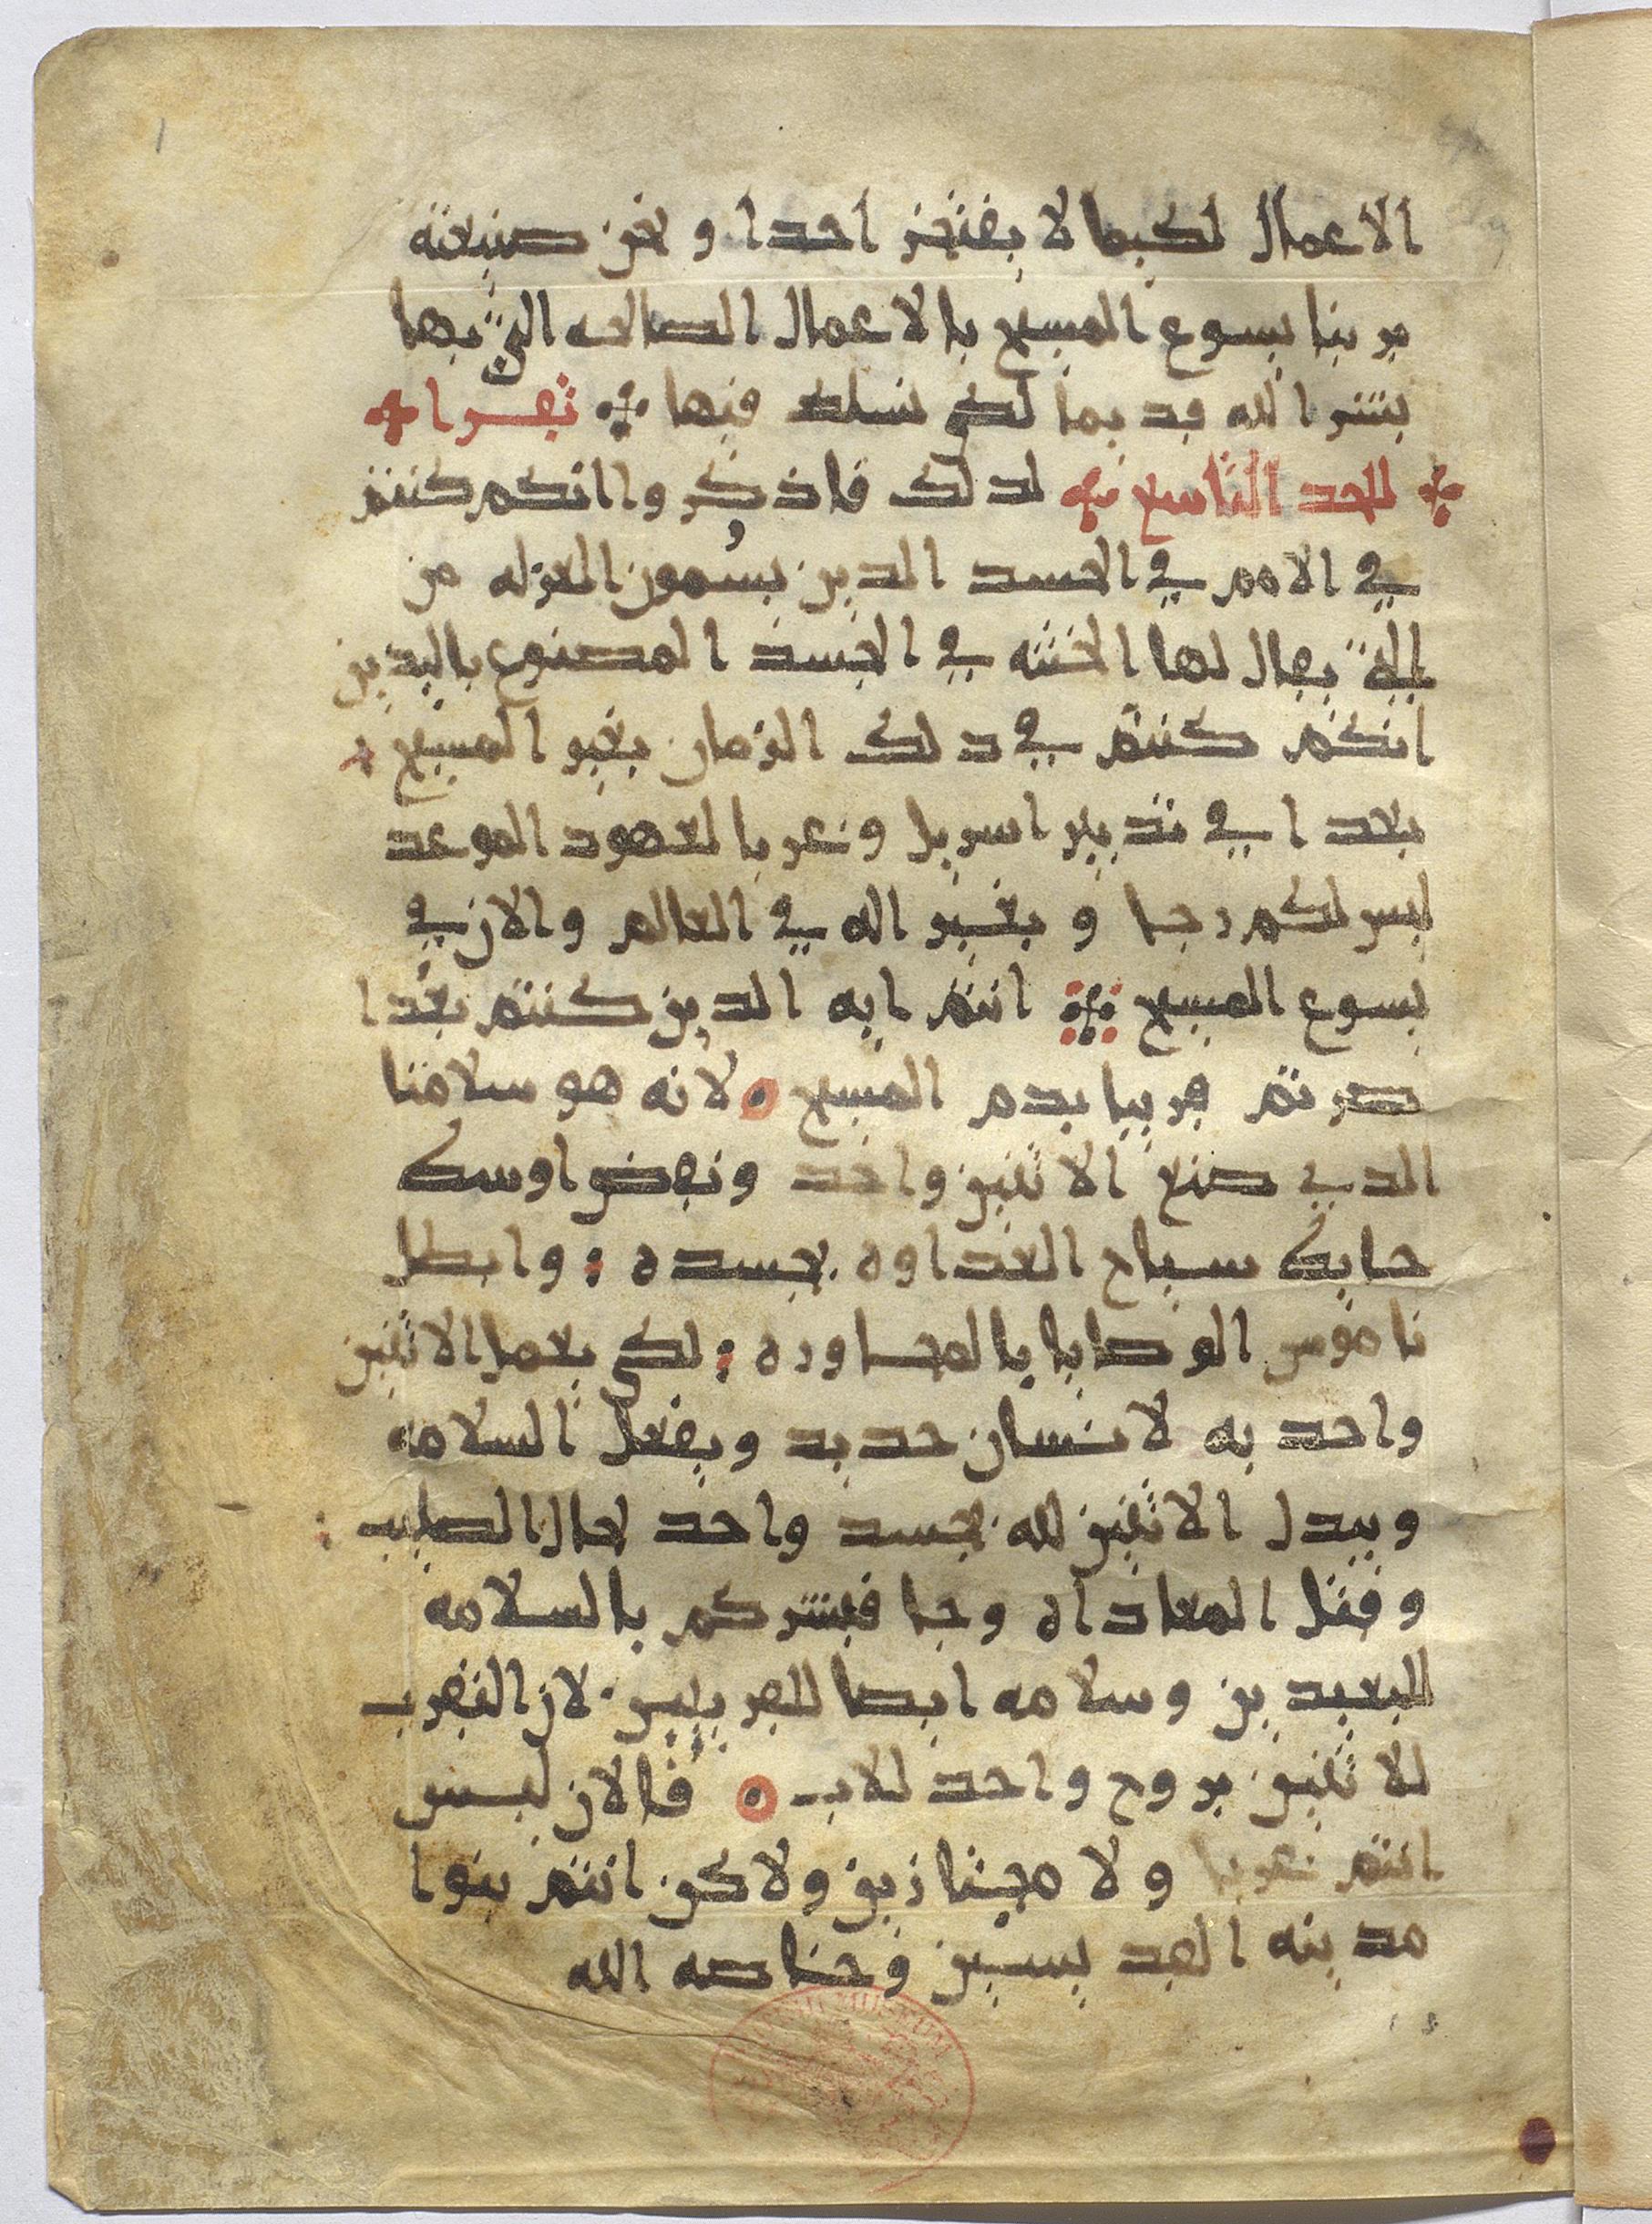 الاعمال لكيما لا يفتخر احدا ونحن صنيعته
بربنا يسوع المسيح بالاعمال الصالحه التي بها
بشر الله قديما لكي نسلك فيها تقرا
للحد التاسع لذلك فاذكروا انكم كنتم
في الامم في الجسد الذين يسمون العزله من
التي يقال لها الختنه في الجسد المصنوع باليدين
انكم كنتم في ذلك الزمان بغير المسيح
بعدا في تدبير اسريل وغربا لعهود الموعد
ليس لكم رجا وبغير اله في العالم والان في
يسوع المسيح انتم ايه الذين كنتم بعدا
صرتم قريبا بدم المسيح لانه هو سلامنا
الذي صنع الاثنين واحد ونقض اوسط
حايط سياج العداوه بجسده وابطل
ناموس الوصايا بالمحاوره لكي يعمل الاثنين
واحد به لانسان جديد ويفعل السلامه
ويبدل الاثنين لله بجسد واحد لحال الصليب
وقتل المعاداه وجا فبشركم بالسلامه
للبعيدين وسلامه ايضا للقريبين لان التقرب
للاثنين بروح واحد للاب فالان ليس
انتم غربا ولا مجتازين ولاكن انتم بنوا
مدينه القديسين وخاصه الله